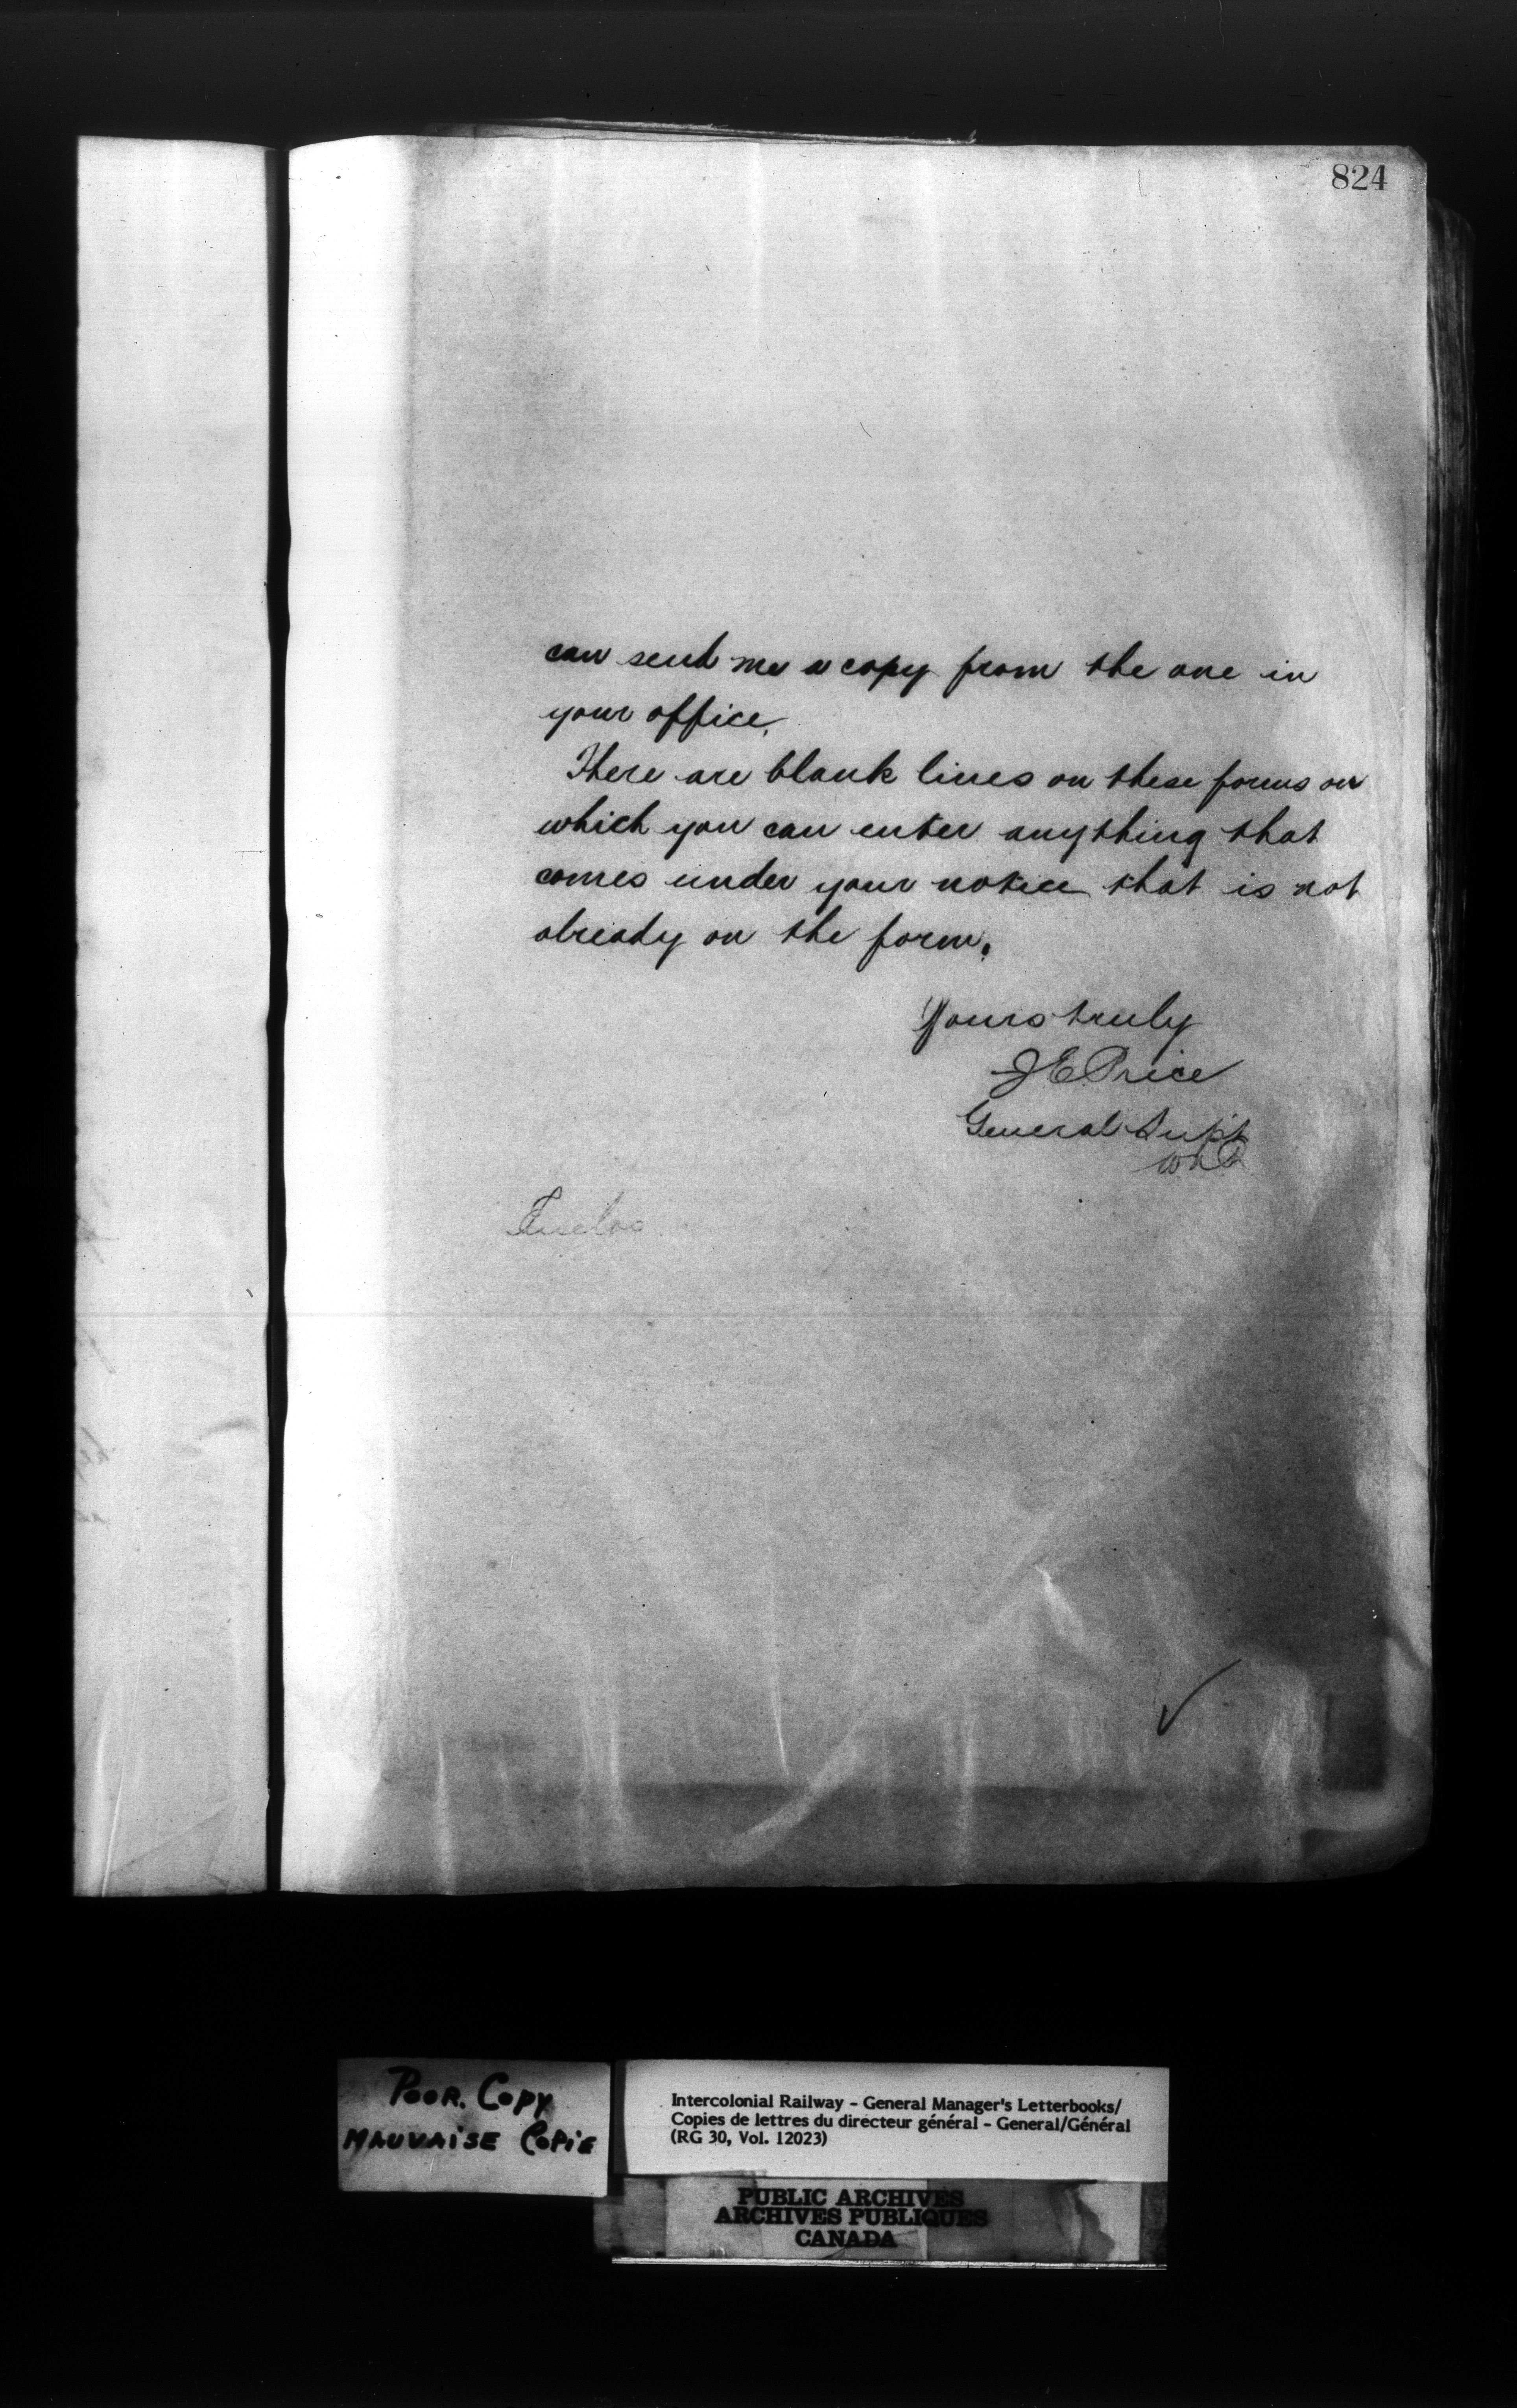 824
can send me a copy from the one in
your office.
There are blank lines on these forms on
which you can enter anything that
comes under your notice that is not
already on the form.
Yours truly
J E Price
General Supt
Inclos
Poor. Copy
Mauvaise Copie
Intercolonial Railway - General Manager's Letterbooks/
Copies de lettres du directeur général - General/Général
(RG 30, Vol. 12023)
PUBLIC ARCHIVES
ARCHIVES PUBLIQUES
CANADA